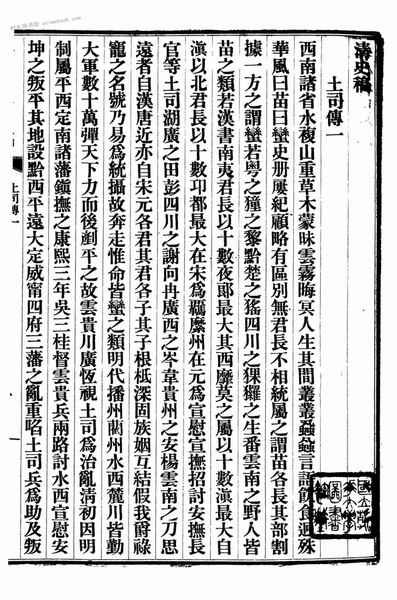 清史稿
土司傳一
西南諸省水複山重草木蒙昧雲霧晦冥人生其間叢叢蝨蝨言語飲食迥殊
華風曰苗曰蠻史册屢紀顧略有區別無君長不相統屬之謂苗各長其部割
據一方之謂蠻若粤之獞之黎黔楚之猺四川之猓玀之生番雲南之野人皆
苗之類若漢書南夷君長以十數夜郎最大其西靡莫之屬以十數滇最大自
滇以北君長以十數卭都最大在宋爲羈縻州在元爲宣慰宣撫招討安撫長
官等土司湖廣之田彭四川之謝向冉廣西之岑韋貴州之安楊雲南之刀思
遠者自漢唐近亦自宋元各君其君各子其子根柢深固族姻互結假我爵祿
寵之名號乃易爲統攝故奔走惟命皆蠻之類明代播州藺州水西麓川皆勤
大軍數十萬殫天下力而後剷平之故雲貴川廣恆視土司爲治亂清初因明
制屬平西定南諸藩鎮撫之康熙三年吳三桂督雲貴兵兩路討水西宣慰安
坤之叛平其地設黔西平遠大定威甯四府三藩之亂重啗土司兵爲助及叛
土司傳一